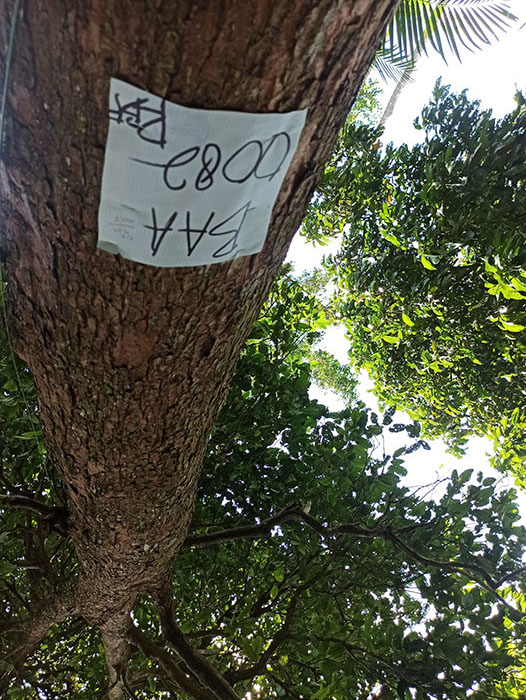 BAA
0082
RBF